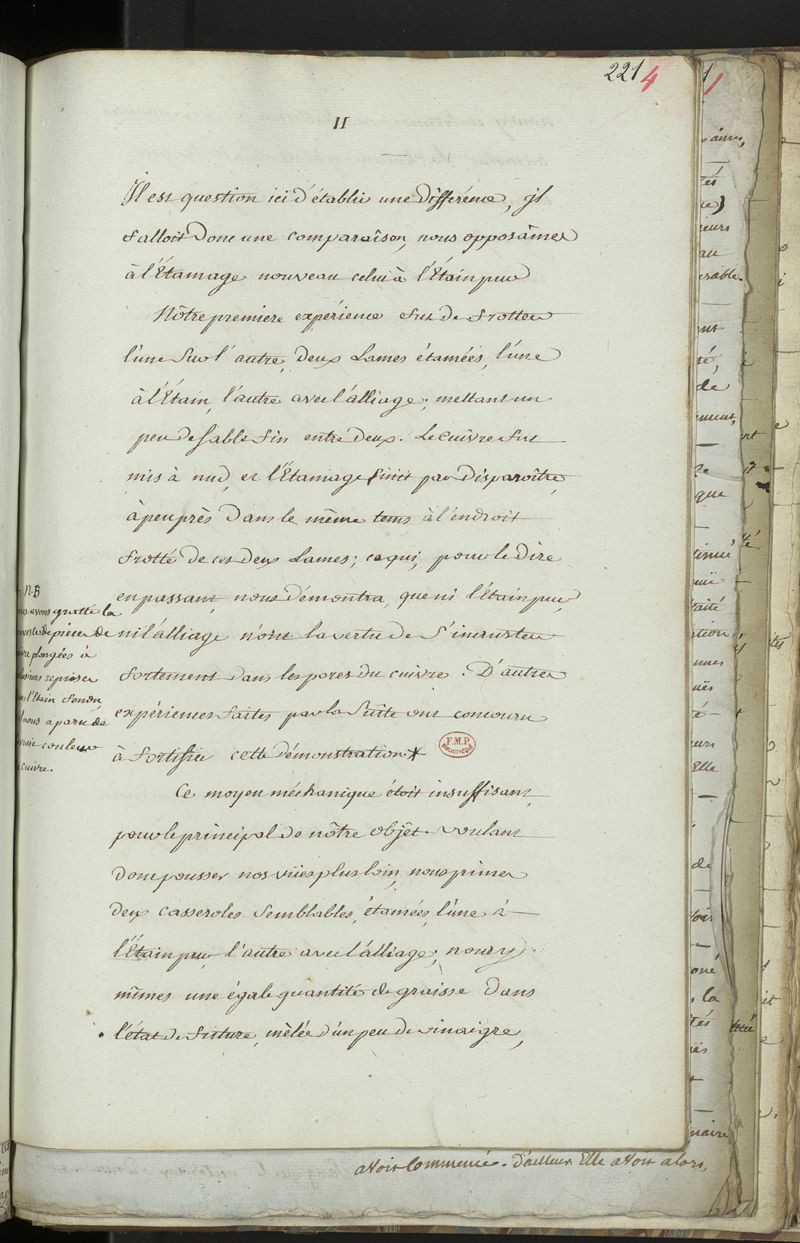 221 4
11
Il est question ici d'établir une différence, il
falloit donc une comparaison, nous opposâmes
à l'Étamage nouveau celui à l'Étain pur
Nôtre premiere expérience fut de frotter
l'une sur l'autre, deux Lames étamées, l'une
à l'Étain, l'autre avec l'alliage; mettant un
peu de sable fin entre deux. Le cuivre fut
mis à nud, et l'Étamage finit par disparoître,
à peu près dans le même tems à l'endroit
frotté de ces deux Lames; ce qui, pour le dire
en passant, nous démontra, que ni l'étain pur,
ni l'alliage n'ont la vertu de s'incruster
fortement dans les pores du cuivre. D'autres
expériences faites par la suite ont concouru
à fortifier cette démonstration *
Ce moyen méchanique étoit insuffisant,
pour le principal de nôtre objèt. voulant
donc pousser nos vües plus loin, nous prîmes
deux casseroles semblables, étamées, l'une à
l'Étain pur, l'autre avec l'alliage; nous y
mîmes une égale quantité de graisse dans
l'état de friture, mêlée d'un peu de vinaigre,
N.B
avons gratté la
pièces de
plongées à
reprises
l'Étain fondu,
nous a paru de
couleur
cuivre.
F.M.P.
BIBLIOTHÈQUE
avoit Commencé. D'ailleurs Elle avoit alors,